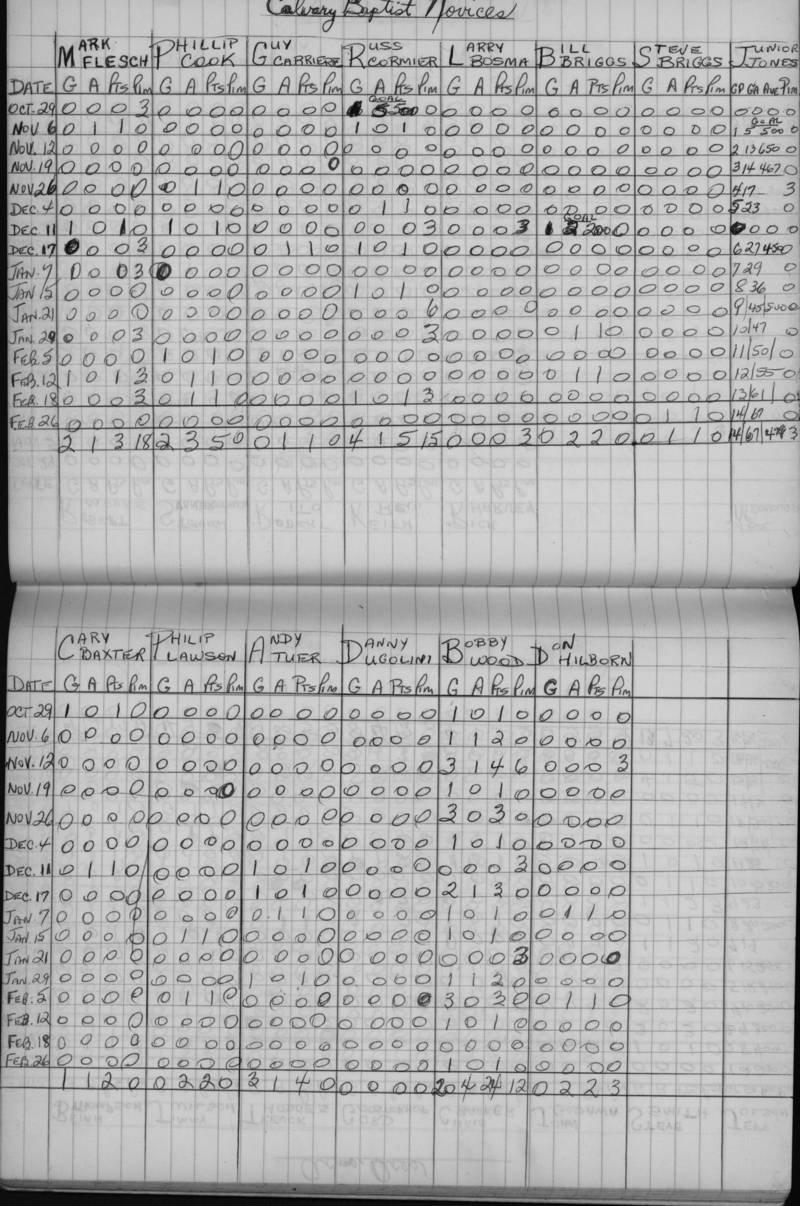 Calvary Baptist Novices
MARK FLESCH PHILLIP COOK GUY CARRIERE RUSS CORMIER LARRY BOSMA BILL BRIGGS STEVE BRIGGS JUNIOR JONES
DATE G A Pts Pim G A Pts Pim G A Pts Pim G A Pts Pim G A Pts Pim G A Pts Pim G A Pts Pim GP GA Ave Pim
OCT. 29 0 0 0 3 0 0 0 0 0 0 0 0 GOAL 5 500 0 0 0 0 0 0 0 0 0 0 0 0 0 0 0 0 0
NOV. 6 0 1 1 0 0 0 0 0 0 0 0 0 1 0 1 0 0 0 0 0 0 0 0 0 0 0 0 0 1 5 GOAL 500 0
NOV. 12 0 0 0 0 0 0 0 0 0 0 0 0 0 0 0 0 0 0 0 0 0 0 0 0 0 0 0 0 2 13 650 0
NOV. 19 0 0 0 0 0 0 0 0 0 0 0 0 0 0 0 0 0 0 0 0 0 0 0 0 0 0 0 0 3 14 467 0
NOV 26 0 0 0 0 0 1 1 0 0 0 0 0 0 0 0 0 0 0 0 0 0 0 0 0 0 0 0 0 4 17 3
DEC. 4 0 0 0 0 0 0 0 0 0 0 0 0 0 1 1 0 0 0 0 0 0 0 0 0 0 0 0 0 5 23 0
DEC 11 1 0 1 0 1 0 1 0 0 0 0 0 0 0 0 3 0 0 0 3 1 GOAL 2 200 0 0 0 0 0 0 0 0 0
DEC. 17 0 0 0 3 0 0 0 0 0 1 1 0 1 0 1 0 0 0 0 0 0 0 0 0 0 0 0 0 6 27 450 0
JAN. 7 0 0 0 3 0 0 0 0 0 0 0 0 0 0 0 0 0 0 0 0 0 0 0 0 0 0 0 0 7 29 0
JAN 15 0 0 0 0 0 0 0 0 0 0 0 0 1 0 1 0 0 0 0 0 0 0 0 0 0 0 0 0 8 36 0
JAN. 21 0 0 0 0 0 0 0 0 0 0 0 0 0 0 0 6 0 0 0 0 0 0 0 0 0 0 0 0 9/45/500 0
JAN. 29 0 0 0 3 0 0 0 0 0 0 0 0 0 0 0 3 0 0 0 0 0 1 1 0 0 0 0 0 10/47 0
FEB. 5 0 0 0 0 1 0 1 0 0 0 0 0 0 0 0 0 0 0 0 0 0 0 0 0 0 0 0 0 11/50/ 0
FEB. 12 1 0 1 3 0 1 1 0 0 0 0 0 0 0 0 0 0 0 0 0 0 1 1 0 0 0 0 0 12/55 0
FEB. 18 0 0 0 3 0 1 1 0 0 0 0 0 1 0 1 3 0 0 0 0 0 0 0 0 0 0 0 0 13/61/ 0
FEB. 26 0 0 0 0 0 0 0 0 0 0 0 0 0 0 0 0 0 0 0 0 0 0 0 0 0 1 1 0 14/67 0
2 1 3 18 2 3 5 0 0 1 1 0 4 1 5 15 0 0 0 3 0 2 2 0 0 1 1 0 14/67/479 3
CARY BAXTER PHILIP LAWSON ANDY TUER DANNY UGOLINI BOBBY WOOD DON HILBORN
DATE G A Pts Pim G A Pts Pim G A Pts Pim G A Pts Pim G A Pts Pim G A Pts Pim
OCT 29 1 0 1 0 0 0 0 0 0 0 0 0 0 0 0 0 1 0 1 0 0 0 0 0
NOV. 6 0 0 0 0 0 0 0 0 0 0 0 0 0 0 0 0 1 1 2 0 0 0 0 0
NOV. 12 0 0 0 0 0 0 0 0 0 0 0 0 0 0 0 0 3 1 4 6 0 0 0 3
NOV. 19 0 0 0 0 0 0 0 0 0 0 0 0 0 0 0 0 1 0 1 0 0 0 0 0
NOV 26 0 0 0 0 0 0 0 0 0 0 0 0 0 0 0 0 3 0 3 0 0 0 0 0
DEC. 4 0 0 0 0 0 0 0 0 0 0 0 0 0 0 0 0 1 0 1 0 0 0 0 0
DEC. 11 0 1 1 0 0 0 0 0 1 0 1 0 0 0 0 0 0 0 0 3 0 0 0 0
DEC. 17 0 0 0 0 0 0 0 0 1 0 1 0 0 0 0 0 2 1 3 0 0 0 0 0
JAN. 7 0 0 0 0 0 0 0 0 0 1 1 0 0 0 0 0 1 0 1 0 0 1 1 0
JAN 15 0 0 0 0 0 1 1 0 0 0 0 0 0 0 0 0 1 0 1 0 0 0 0 0
JAN 21 0 0 0 0 0 0 0 0 0 0 0 0 0 0 0 0 0 0 0 3 0 0 0 0
JAN. 29 0 0 0 0 0 0 0 0 1 0 1 0 0 0 0 0 1 1 2 0 0 0 0 0
FEB. 5 0 0 0 0 0 1 1 0 0 0 0 0 0 0 0 0 3 0 3 0 0 1 1 0
FEB. 12 0 0 0 0 0 0 0 0 0 0 0 0 0 0 0 0 1 0 1 0 0 0 0 0
FEB. 18 0 0 0 0 0 0 0 0 0 0 0 0 0 0 0 0 0 0 0 0 0 0 0 0
FEB. 26 0 0 0 0 0 0 0 0 0 0 0 0 0 0 0 0 1 0 1 0 0 0 0 0
1 1 2 0 0 2 2 0 3 1 4 0 0 0 0 0 20 4 24 12 0 2 2 3